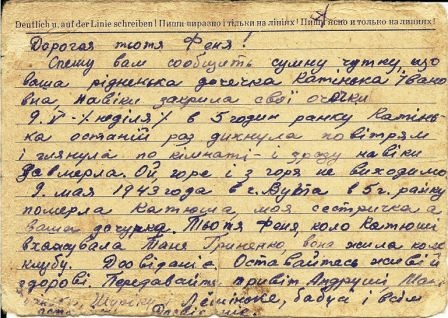 Deutlich u. auf der Linie schreiben! Пиши виразно і тільки на лініях! Пиши ясно и только на линиях!
Дорогая тютя Феня!
Спешу вам сообщить сумну чутку що
ваша рідненька дочечка Катінька Івано
вна, навіки закрила свої очочки
9.V - /неділя/ в 5 годин ранку Катінь-
ка останій раз дихнула повітрям
і глянула по кімнаті - і зразу навіки
завмерла. Ой, горе і з горя не виходимо
9. мая 1943 года в г. в 5 г. ранку
померла Катюша, моя сестричка а
ваша дочурка. Тьотя Феня, коло Катюши
вхажувала Таня Гриненко, вона жила коло
клубу. До відані. Оставайтесь живі й
здорові. Передавайте привіт Андрушi
Шурікy Льонікове, бабусі і всім